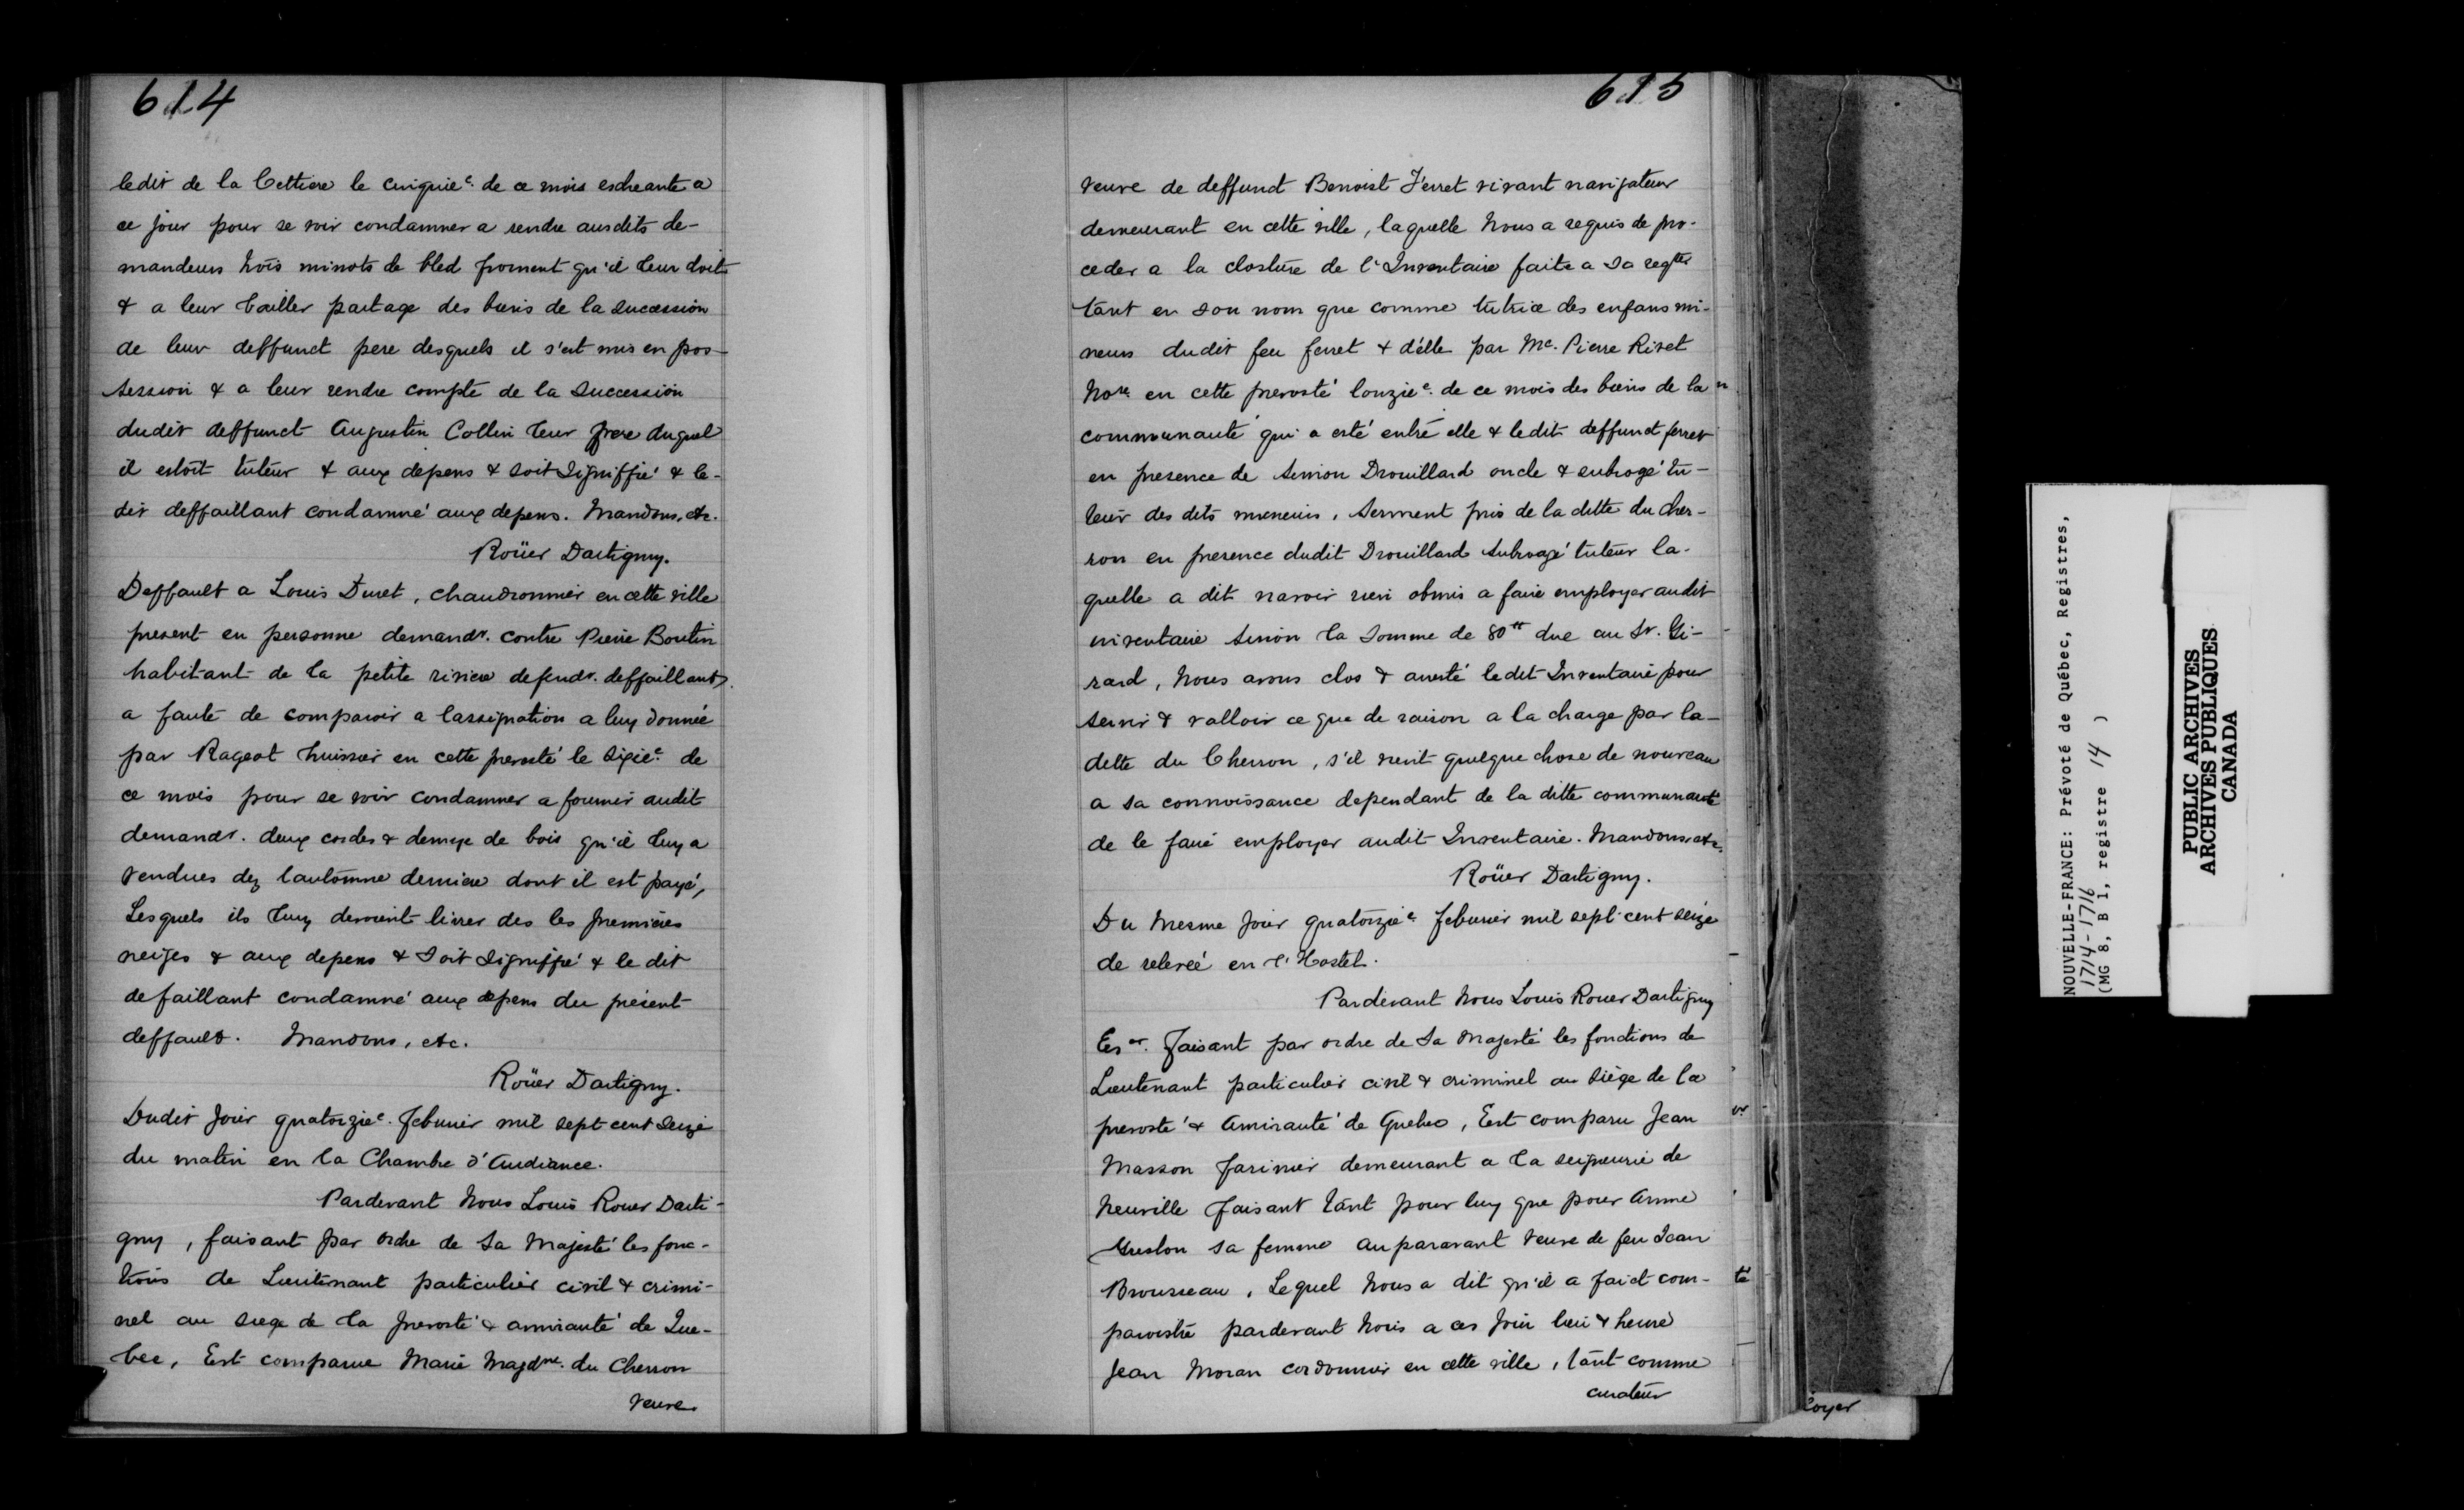 614
ledit de la Cettiere le cinquie. de ce mois escheante a
ce jour pour se voir condamner a rendre ausdits de-
mandeurs trois minots de bled froment qu'il leur doit
& a leur bailler partage des biens de la succession
de leur deffunct pere desquels il s'est mis en pos-
session & a leur rendre compte de la succession
dudit deffunct Augustin Collin leur frere duquel
il estoit tuteur & aux depens & soit signiffié & le-
dit deffaillant condamné aux depens. Mandons, etc.
Roüer Dartigny.
Deffault a Louis Duret, chaudronnier en cette ville
present en personne demandr. contre Pierre Boutin
habitant de la petite riviere defendr. deffaillant
a faute de comparoir a lassignation a luy donnée
par Rageot huissier en cette prevosté le sixie. de
ce mois pour se voir condamner a fournir audit
demandr. deux cordes & demye de bois qu'il luy a
vendues dez lautomne derniere dont il est payé,
Lesquels ils luy devoient livrer des les premières
neiges & aux depens & soit signiffié & le dit
defaillant condamné aux depens du présent
deffault. Mandons, etc.
Roüer Dartigny.
Dudit jour quatorzie. febvrier mil sept cent seize
du matin en la Chambre d'Audiance.
Pardevant Nous Louis Rouer Darti-
gny, faisant par ordre de Sa Majesté les fonc-
tions de Lieutenant particulier civil & crimi-
nel au siege de la prevosté & amirauté de Que-
bec, Est comparue Marie Magdne. du Cherron
veuve
615
veuve de deffunct Benoist Ferret vivant navigateur
demeurant en cette ville, laquelle Nous a requis de pro-
ceder a la closture de l'Inventaire faite a sa regtte
tant en son nom que comme tutrice des enfans mi-
neurs dudit feu ferret & d'elle par Me. Pierre Rivet
Nore. en cette prevosté lonzie. de ce mois des biens de la
communauté qui a esté entre elle & ledit deffunct ferret
en presence de Simon Drouillard oncle & subrogé tu-
teur des dits mineurs, Serment pris de la ditte du Cher-
ron en presence dudit Drouillard Subrogé tuteur la-
quelle a dit navoir rien obmis a faire employer audit
inventaire sinon la somme de 80tt due au Sr. Gi-
rard, Nous avons clos & aresté ledit Inventaire pour
servir & valloir ce que de raison a la charge par la-
ditte du Cherron, s'il vient quelque chose de nouveau
a sa connoissance dependant de la ditte communauté
de le faire employer audit Inventaire. Mandons, etc.
Roüer Dartigny.
Du Mesme jour quatorzie. febvrier mil sept cent seize
de relevée en l'Hostel.
Pardevant Nous Louis Rouer Dartigny
Eer. faisant par ordre de Sa Majesté les fonctions de
Lieutenant particulier civil & criminel au siège de la
prevosté & Amirauté de Quebec, Est comparu Jean
Masson farinier demeurant a la seigneurie de
Neuville faisant tant pour luy que pour Anne
Greslon sa femme auparavant veuve de feu Jean
Brousseau, Lequel Nous a dit qu'il a faict com-
paroistre pardevant Nous a ces jour lieu & heure
Jean Moran cordonnier en cette ville, tant comme
curateur
loyer
NOUVELLE-FRANCE: Prévoté de Québec, Registres,
1714-1716
(MG 8, B 1, registre 14 )
PUBLIC ARCHIVES
ARCHIVES PUBLIQUES
CANADA